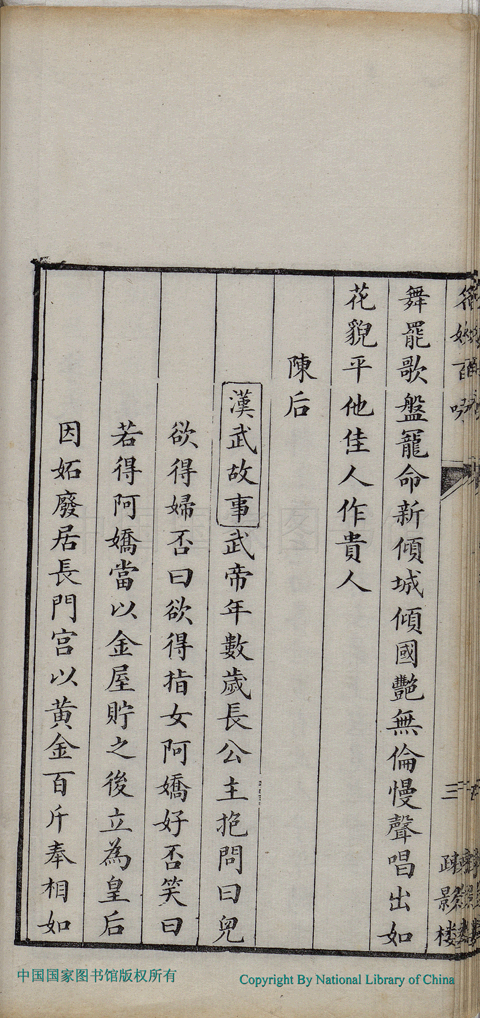 舞罷歌盤寵命新傾城傾國豔無倫慢聲唱出如
花貌平他佳人作貴人
陳后
漢武故事武帝年數歲長公主抱問曰兒
欲得婦否曰欲得指女阿嬌好否笑曰
若得阿嬌當以金屋貯之後立為皇后
因妬廢居長門宮以黃金百斤奉相如
三
疎景樓
中国国家图书馆版权所有
Copyright By National Library of China